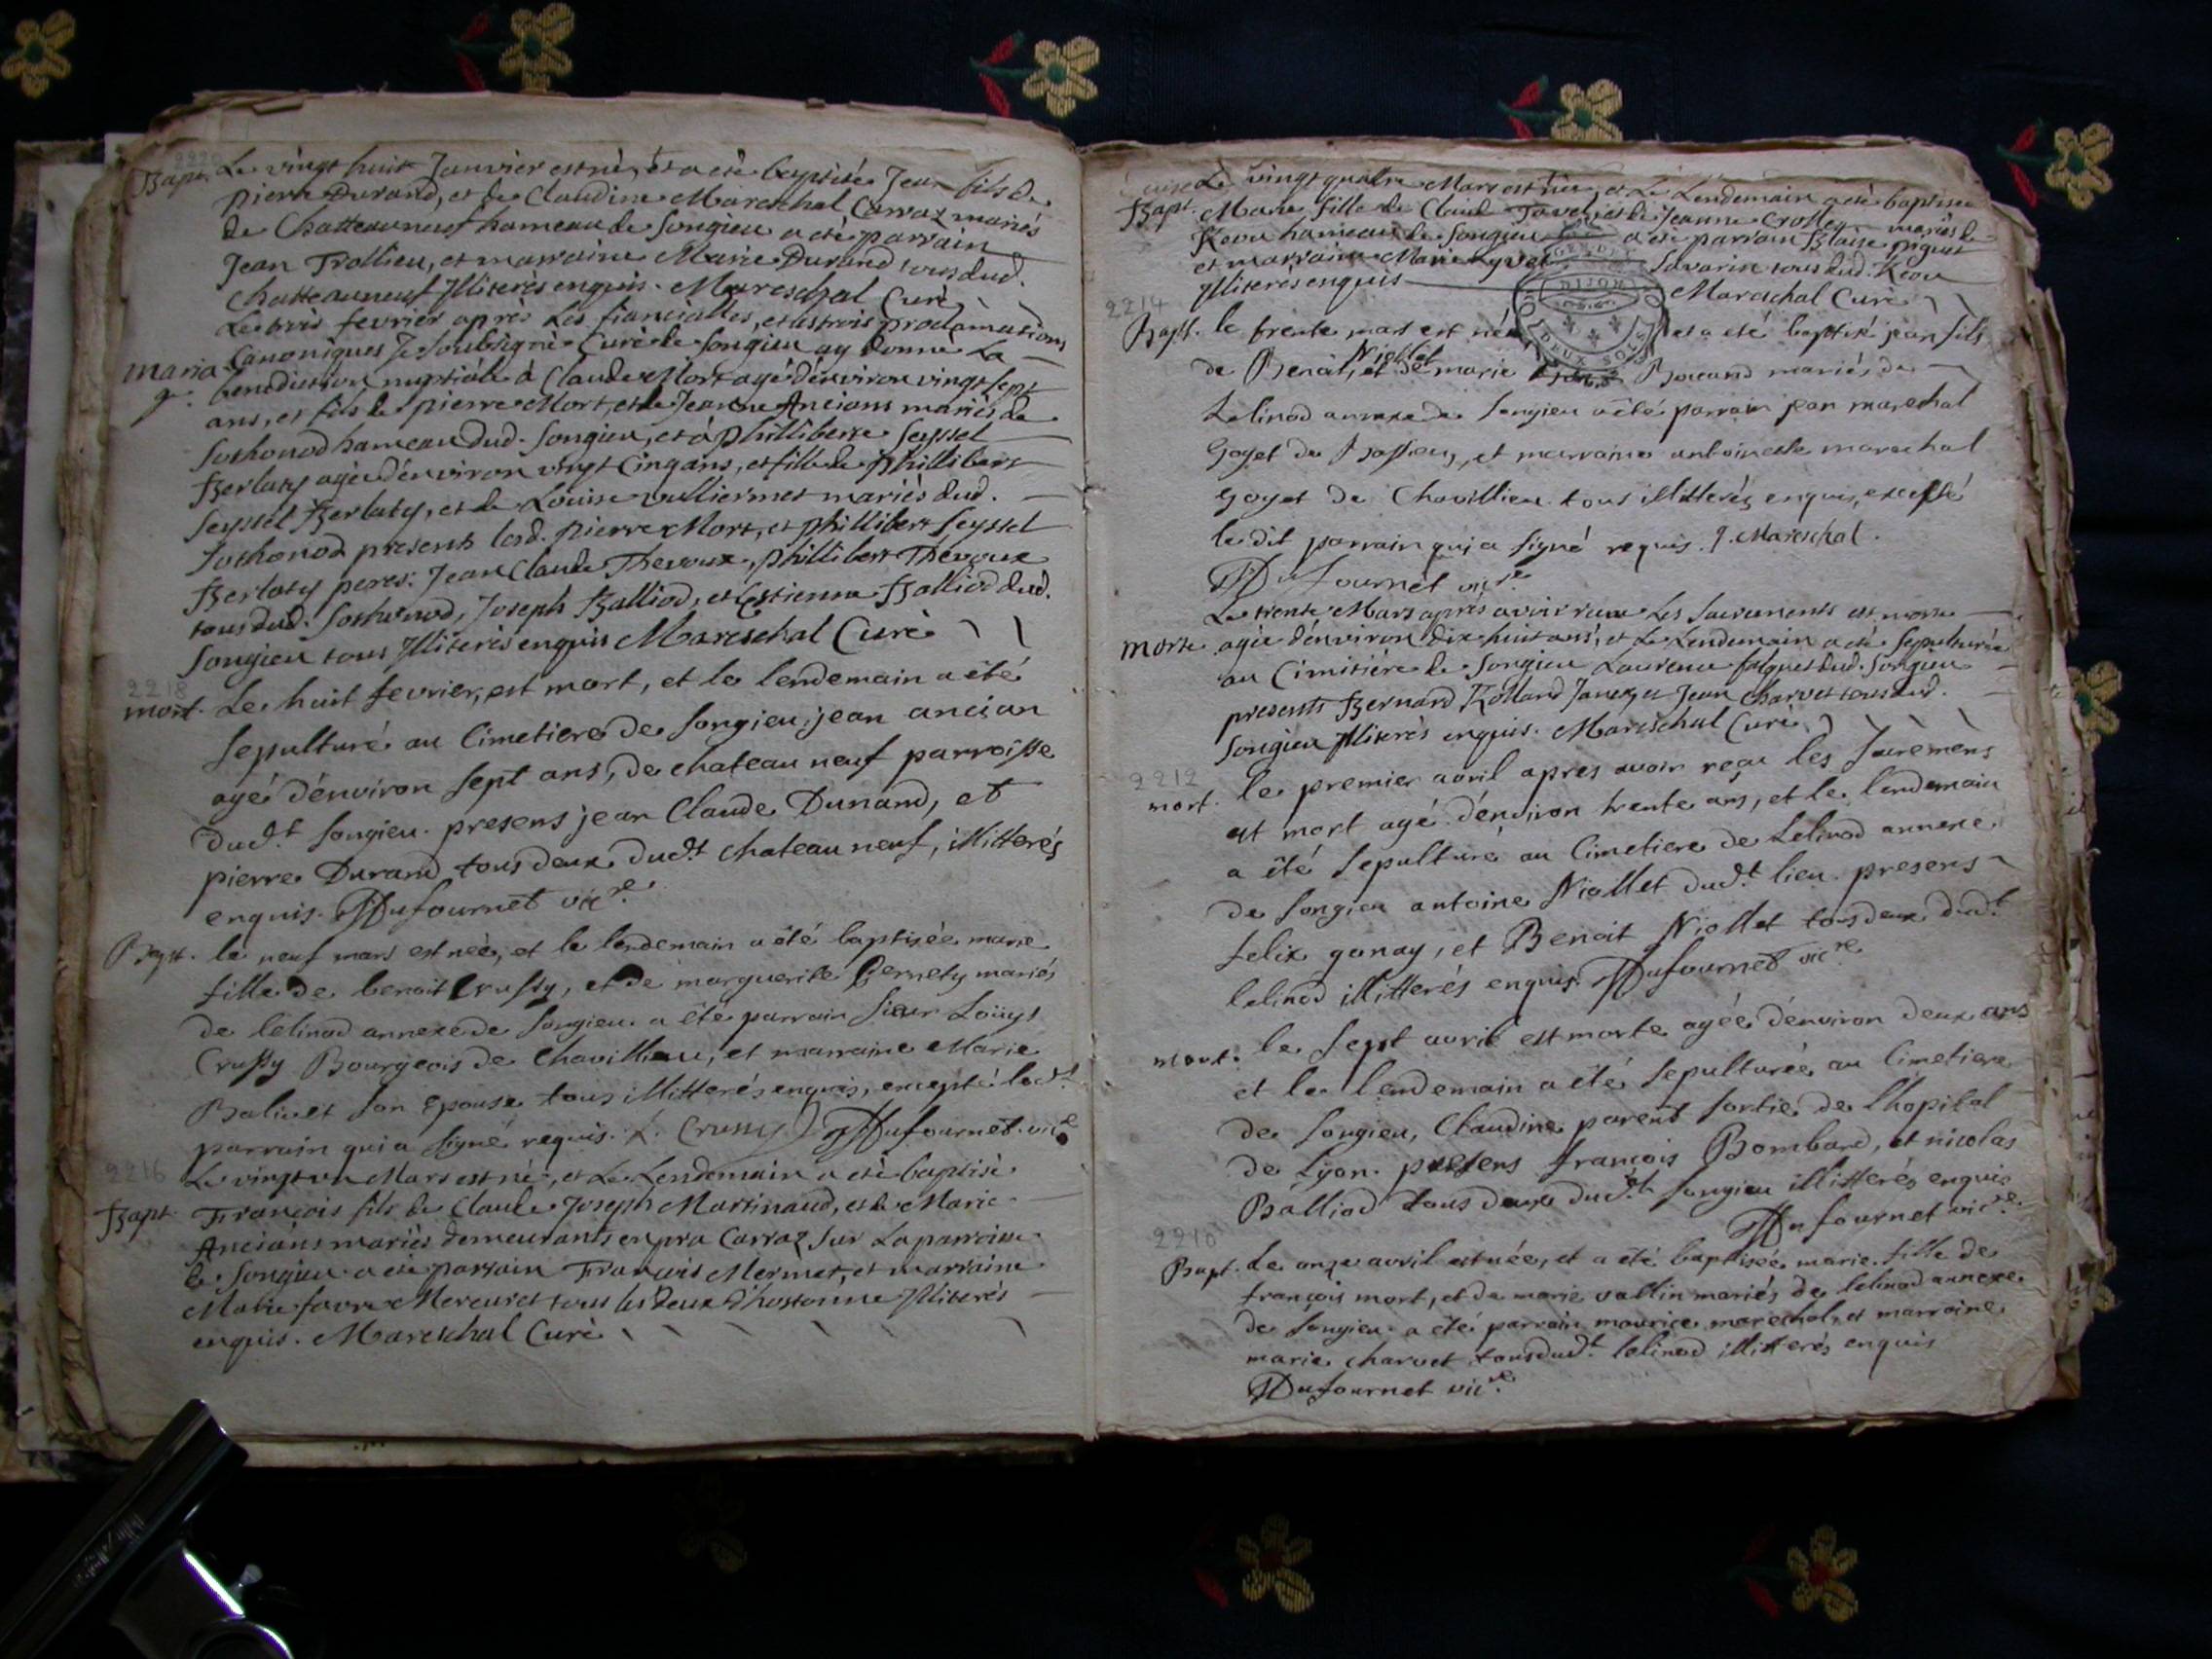 2220
Bapt. Le vingt huit Janvier est né, et a été baptisée Jean fils de
pierre Durand, et de Claudine Mareschal Carraz mariés
de Chatteauneuf hameau de Songieu a été parrain
Jean Trollieu, et marraine Marie Durand tous dud.
Chatteauneuf Illiterés enquis. Mareschal Curé
Le trois fevrier après les fiancialles, et les trois proclamations
maria Canoniques Je Soubsigné Curé de Songieu ay donné La
g. benediction nuptiale à Claude Mort agé d'environ vingt sept
ans, et fils de pierre Mort, et de Jeanne Ancians mariés de
Sothonod hameau dud. Songieu, et à phillibert Seyssel
Berlaty agée d'environ vingt Cinq ans, et fille de phillibert
Seyssel Berlaty, et de Louise vulliermet mariés dud.
Sothonod presents lesd. pierre Mort, et phillibert Seyssel
Berlaty peres: Jean Claude Thevoux, phillibert Thévoux
tous dud. Sothonod, Joseph Balliod, et Estienne Balliod dud.
Songieu tous Illiterés enquis Mareschal Curé
2218
mort. Le huit fevrier, est mort, et le lendemain a été
sepulturé au Cimetiere de Songieu jean ancian
agé d'environ sept ans, de chateau neuf parroisse
dud.t Songieu. presens jean Claude Dunand, et
pierre Durand tous deux dud.t chateau neuf, illitterés
enquis. Dufournet vic.re
Bapt. le neuf mars est née, et le lendemain a été baptisée marie
fille de benoit Crussy, et de marguerite Gernety mariés
de lelinod annexe de Songieu. a été parrain Sieur Loüys
Crussy Bourgeois de Chavillieu, et marraine Marie
Balivet son Epouse tous illitterés enquis, excepté led.t
parrain qui a signé requis. L. Crussy Dufournet vic.re
2216
Le vingt un Mars est né, et Le Lendemain a été baptisé
Bapt. François fils de Claude Joseph Martinaud, et de Marie
Ancians mariés demeurants en pra Carraz sur La parroisse
de Songieu a été parrain François Mermet, et marraine
Marie favre Mercuret tous les deux d'hostonne Illiterés
enquis. Mareschal Curé
Le vingt quatre Mars est née, et Le Lendemain a été baptisée
Bapt. Marie fille de Claude Tavel, et de Jeanne mariés de
hameau de Songieu a été parrain Blaise piguet
et marraine Marie yvet Savarin tous dud.
Illiterés enquis Mareschal Curé
DIJON
DEUX SOLS
2214
Bapt. le trente mars est né et a été baptisé jean fils
de Benoit Niollet, et de marie Burcand mariés de
Lelinod annexe de Songieu a été parrain jean marechal
Goyet de Bassieu, et marraine antoinette marechal
Goyet de Chavillieu tous illitterés enquis, excepté
le dit parrain qui a signé requis. J. Mareschal.
Dufournet vic.re
Le trente Mars après avoir receu Les Sacrements est morte
morte agée d'environ dix huit ans, et Le Lendemain a été sepulturée
au Cimitiére de Songieu Laurence falquet dud. Songieu
presents Bernard Rolland Janex, et Jean Charvet tous dud.
Songieu Illiterés enquis. Mareschal Curé
2212
mort. le premier avril apres avoir reçu les Sacremens
est mort agé d'environ trente ans, et le lendemain
a été sepulturé au Cimetiere de Lelinod annexe
de Songieu antoine Niollet dud.t lieu. presens
felix gonay, et Benoit Niollet tous deux dud.t
lelinod illitterés enquis. Dufournet vic.re
mort. le sept avril est morte agée d'environ deux ans
et le lendemain a été sepulturée au Cimetiere
de Songieu, Claudine parent sortie de l'hopital
de Lyon. presens françois Bombard, et nicolas
Balliod tous deux dud.t Songieu illitterés enquis
Dufournet vic.re
2210
Bapt. Le onze avril est née, et a été baptisée marie fille de
françois mort, et de marie vallin mariés de lelinod annexe
de Songieu. a été parrain maurice marechal, et marraine
marie charvet tous dud.t lelinod illitterés enquis
Dufournet vic.re